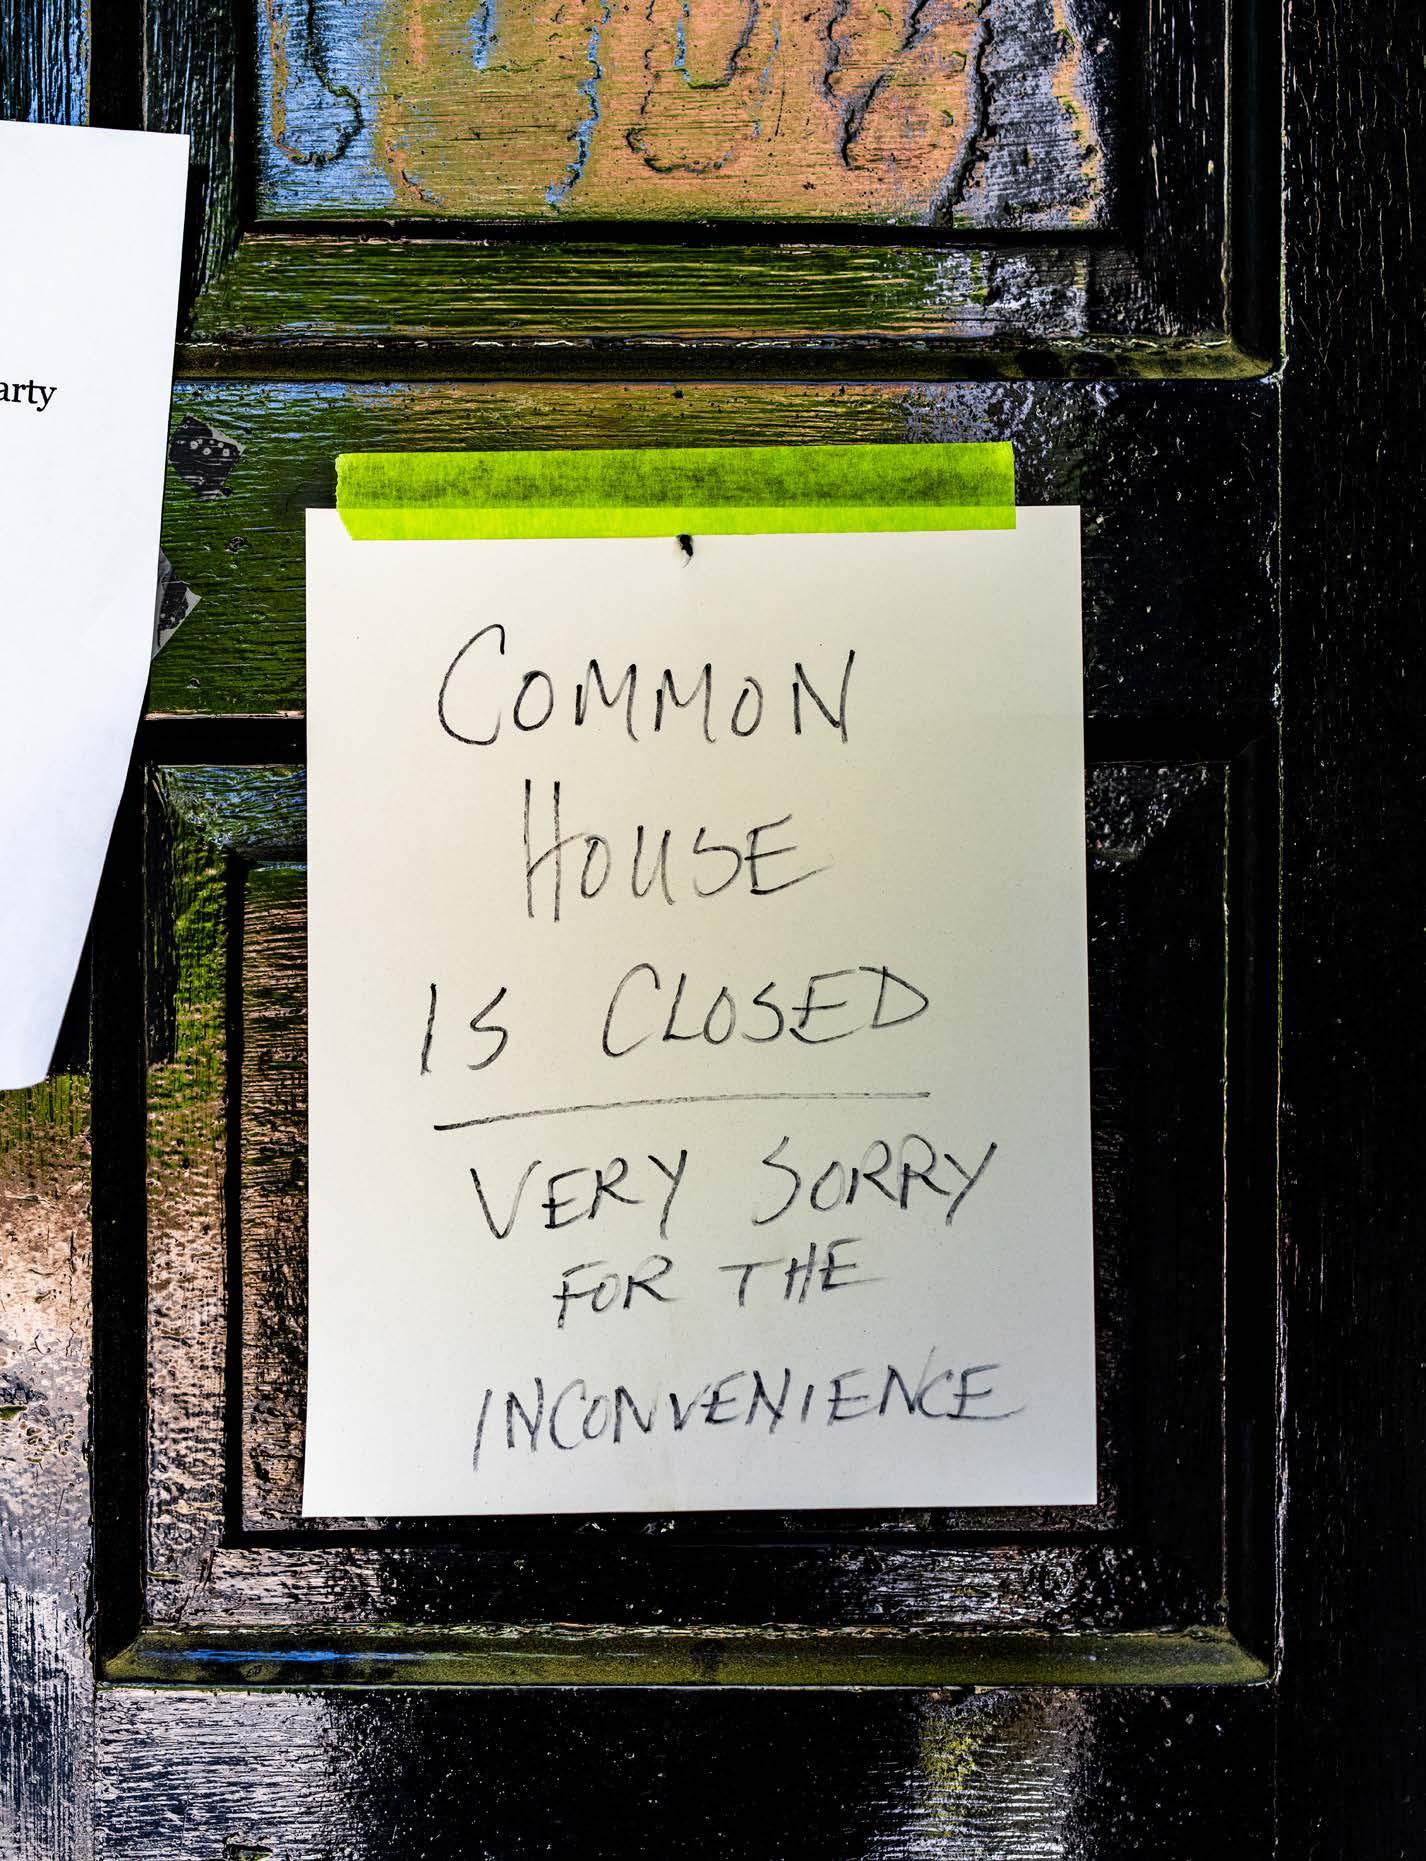 arty
COMMON
HOUSE
IS CLOSED
VERY SORRY
FOR THE
INCONVENIENCE